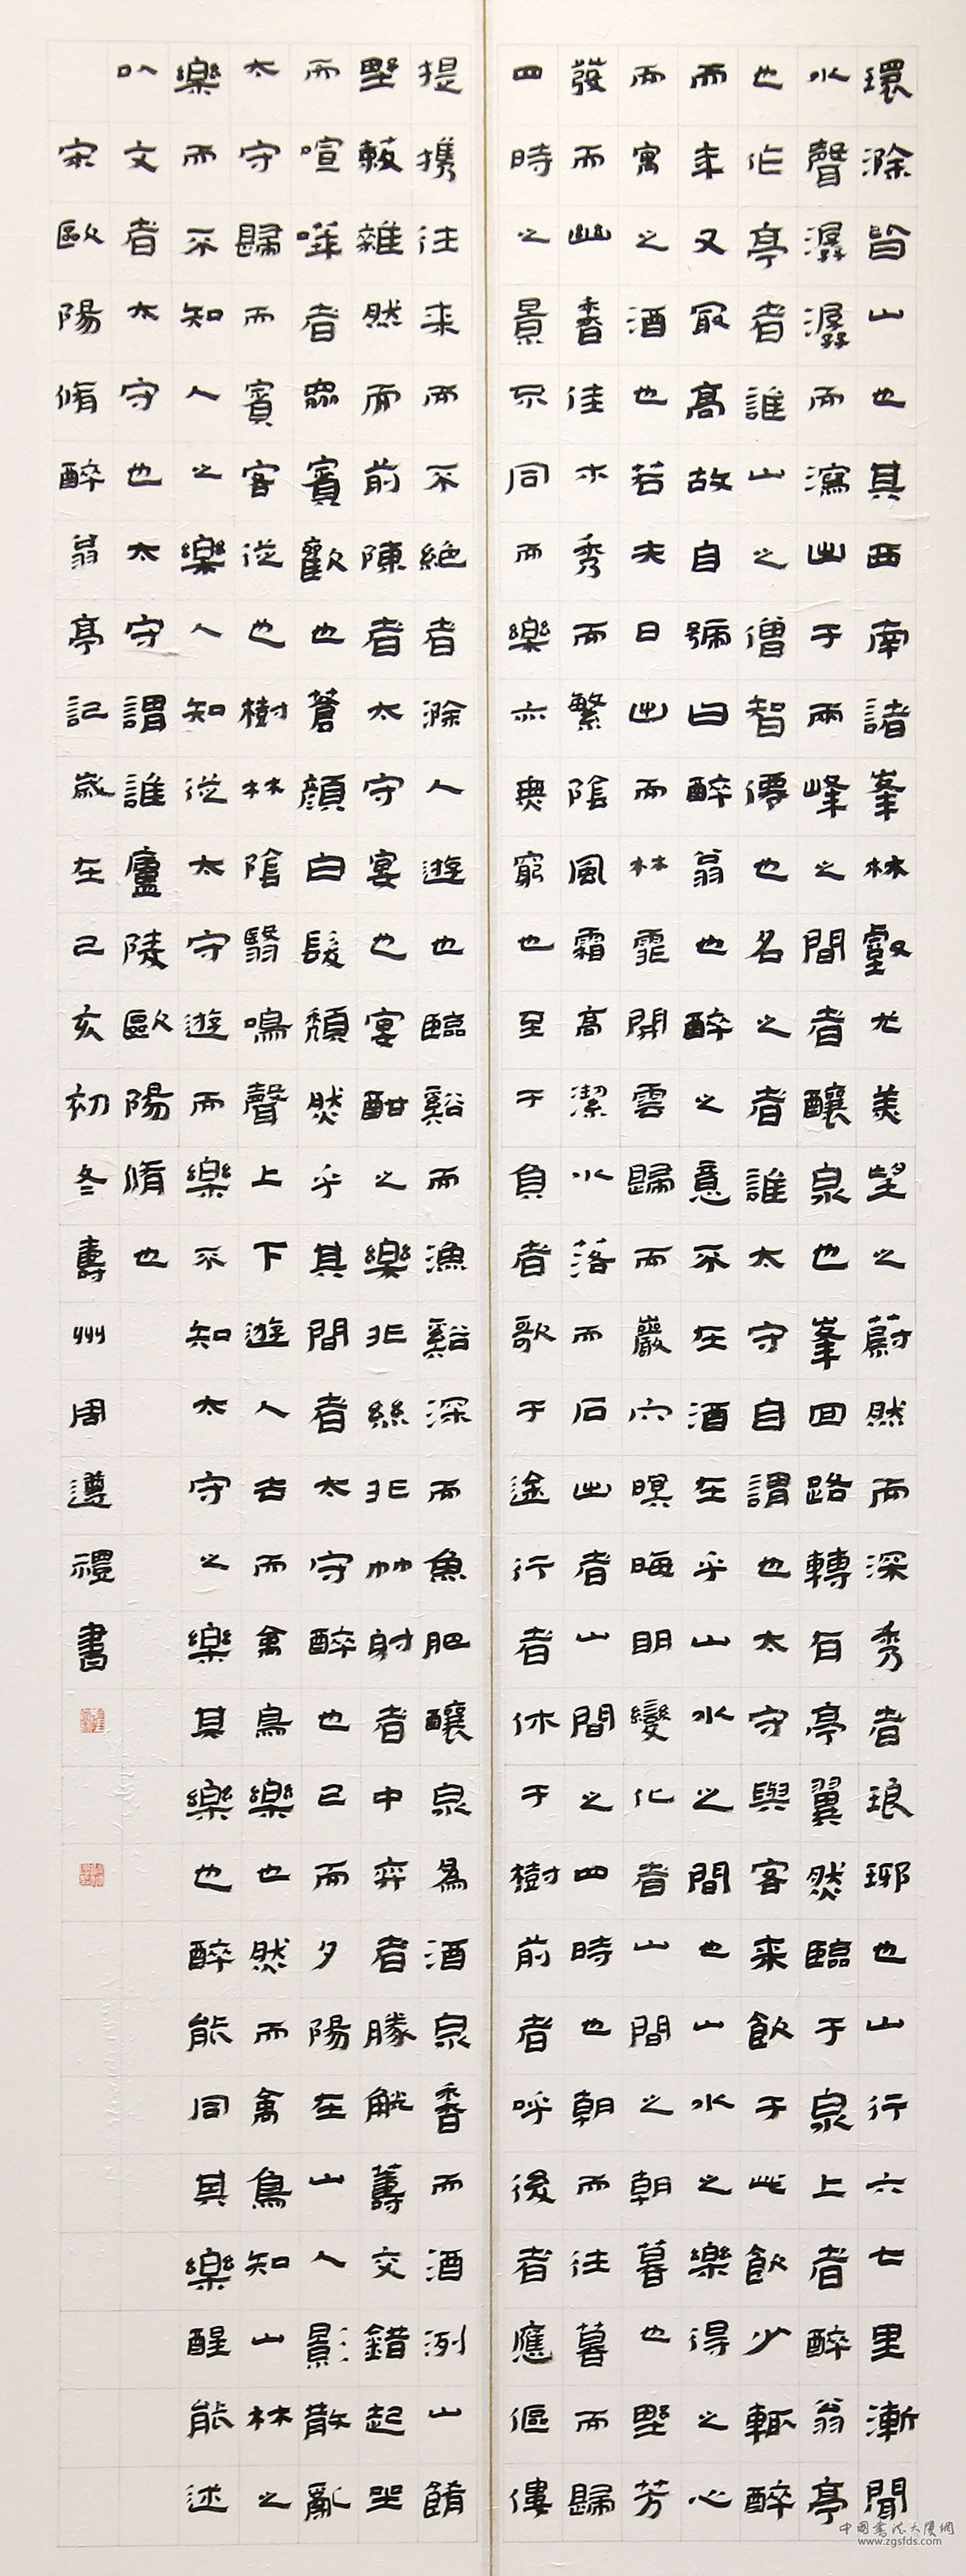 環滁皆山也其西南諸峯林壑尤美望之蔚然而深秀者琅琊也山行六七里漸聞
水聲潺潺而瀉出于兩峰之間者釀泉也峯回路轉有亭翼然臨于泉上者醉翁亭
也作亭者誰山之僧智僊也名之者誰太守自謂也太守與客来飲于此飲少輒醉
而年又最高故自號曰醉翁也醉之意不在酒在乎山水之間也山水之樂得之心
而寓之酒也若夫日出而林霏開雲歸而巖穴暝晦明變化者山間之朝暮也野芳
發而幽香佳木秀而繁陰風霜高潔水落而石出者山間之四時也朝而往暮而歸
四時之景不同而樂亦無窮也至于負者歌于途行者休于樹前者呼後者應傴僂
提携往来而不絕者滁人遊也臨谿而漁谿深而魚肥釀泉為酒泉香而酒洌山餚
野蔌雜然而前陳者太守宴也宴酣之樂非絲非竹射者中弈者勝觥籌交錯起坐
而喧嘩者眾賓歡也蒼顏白髮頹然乎其間者太守醉也已而夕陽在山人影散亂
太守歸而賓客從也樹林陰翳鳴聲上下遊人去而禽鳥樂也然而禽鳥知山林之
樂而不知人之樂人知從太守遊而樂不知太守之樂其樂也醉能同其樂醒能述
以文者太守也太守謂誰廬陵歐陽脩也
宋歐陽脩醉翁亭記歲在己亥初冬壽州周遵禮書
中国书法大厦網
www.zgsfds.com